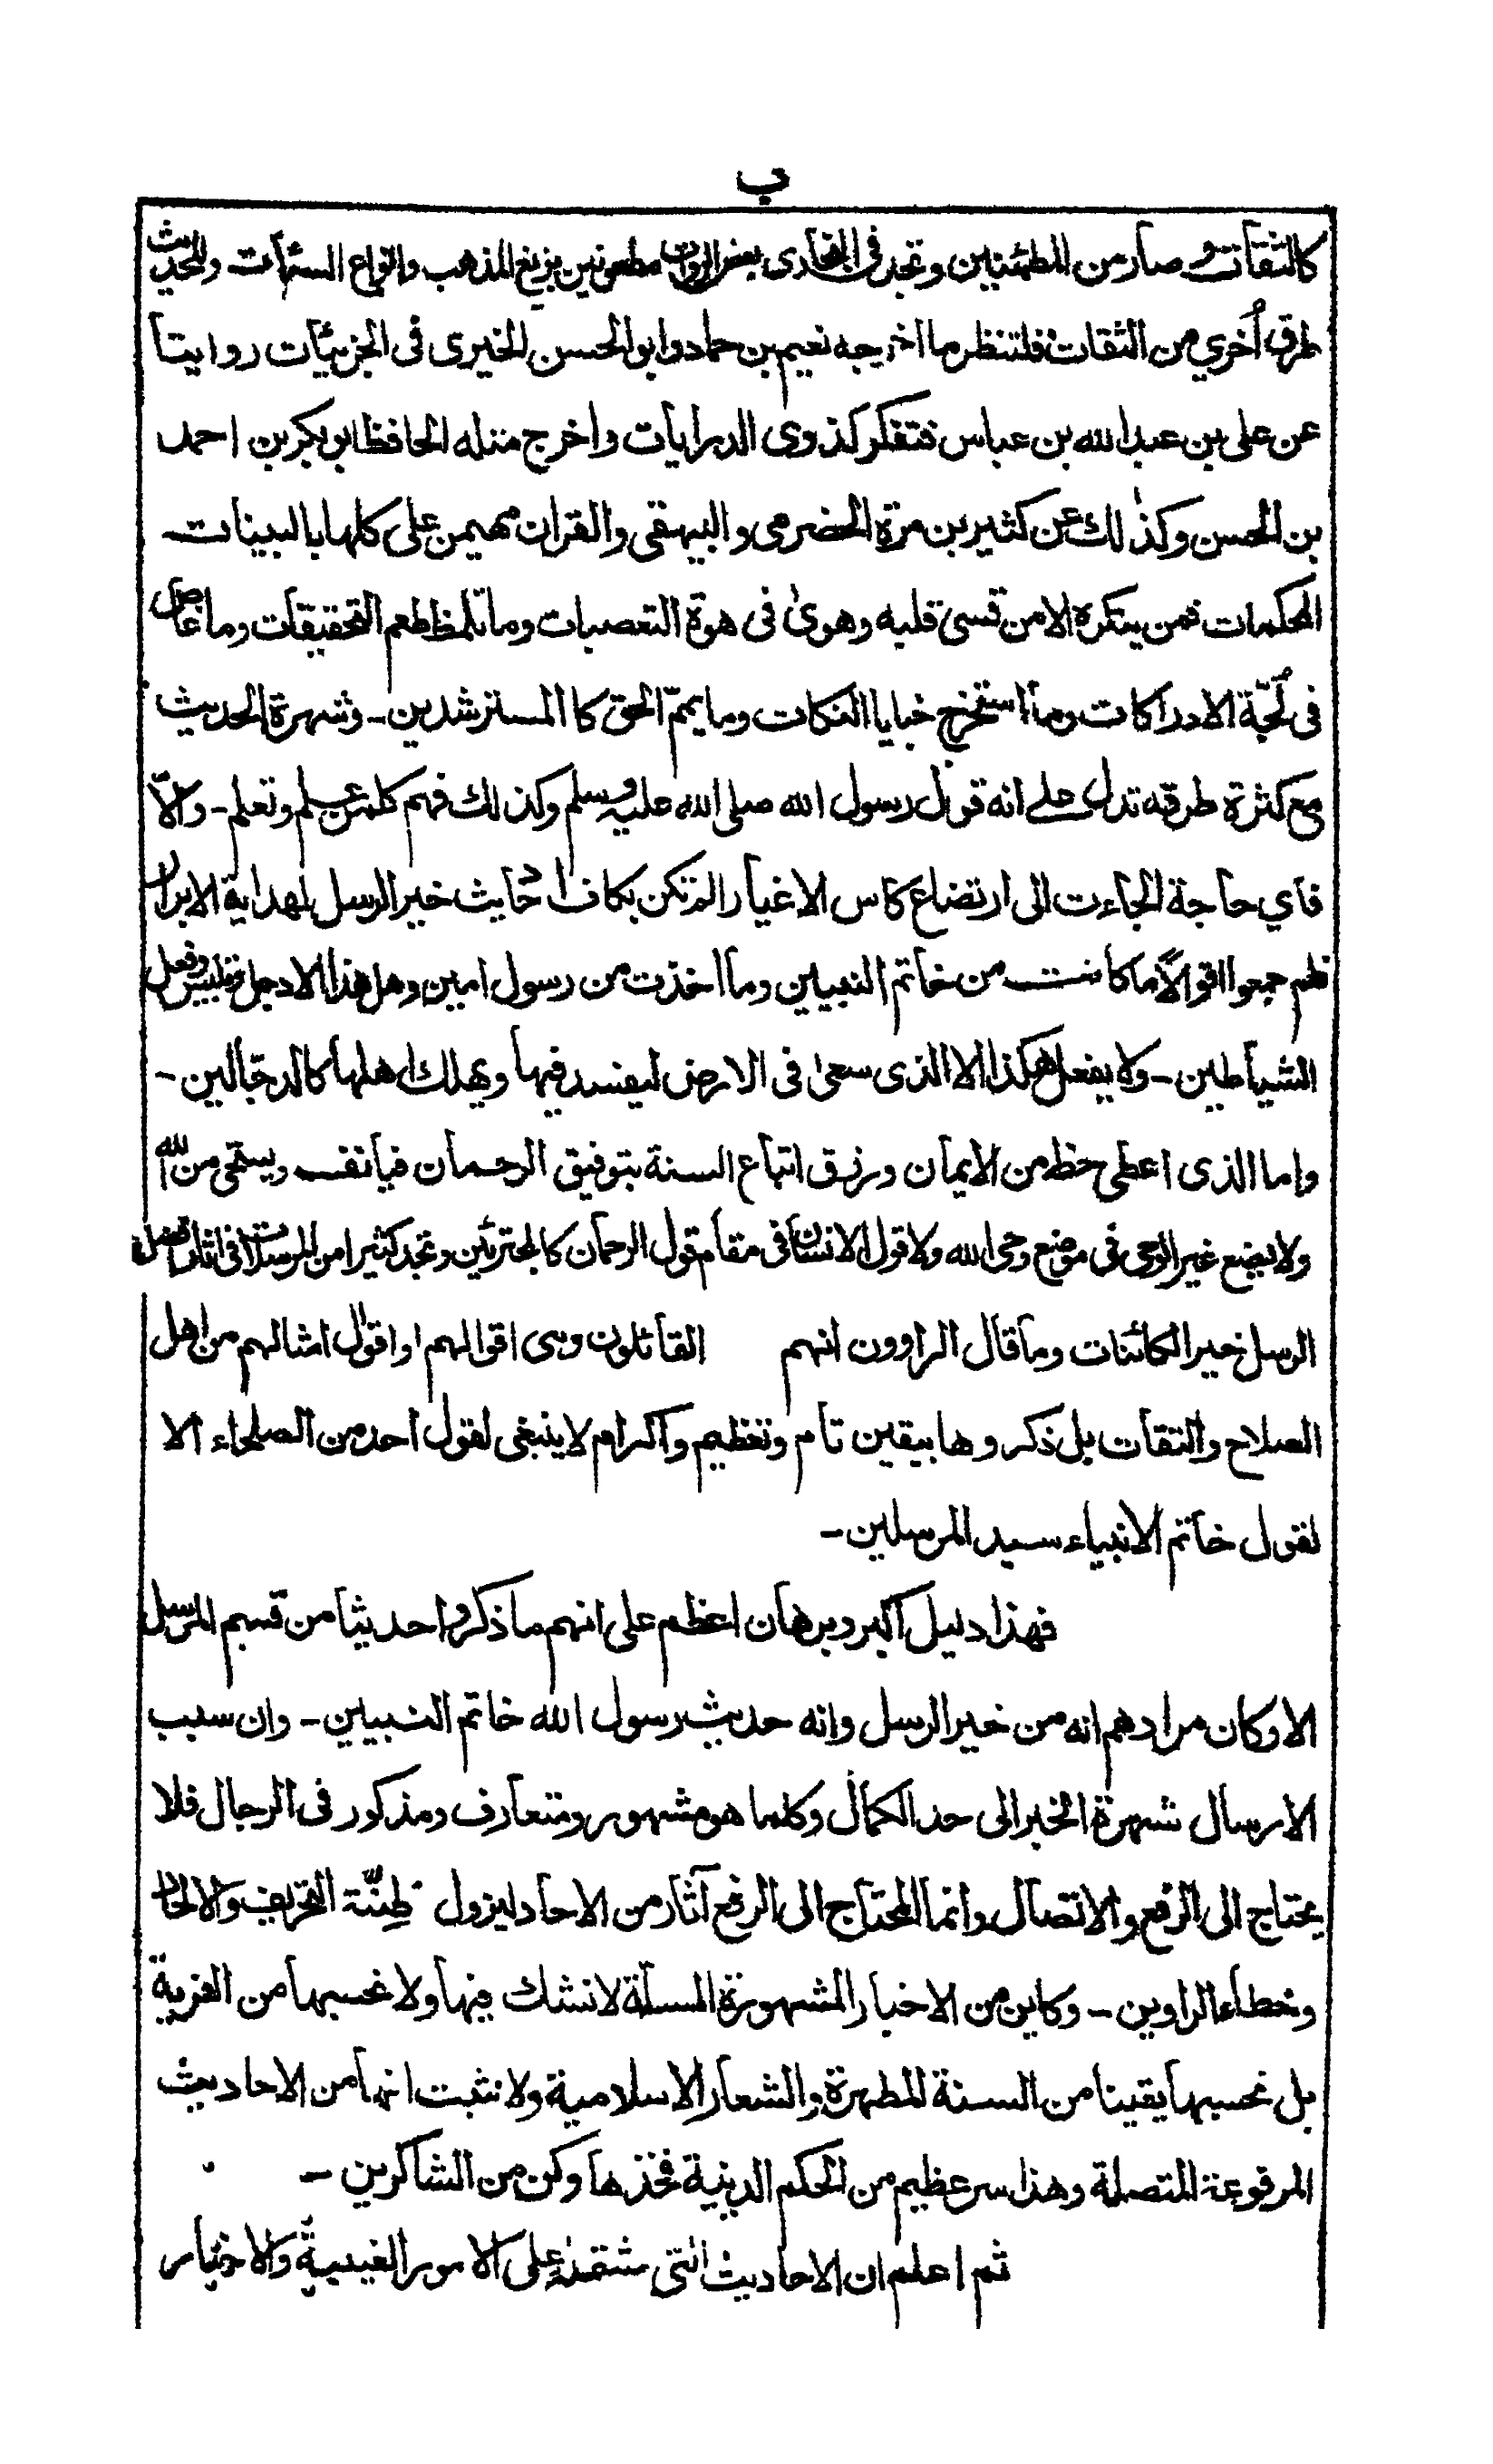 ب
كالثقات وصار من المطمئنين وتجد فى البخارى بعض الرواة مطعونين بزيغ المذهب وانواع السيئات وللحديث
طرق اُخرى من الثقات فلتنظر ما اخرجه نعيم بن حماد وابو الحسن الخيرى فى الجزئيات روايتا
عن على بن عبد الله بن عباس فتفكر كذوى الدرايات واخرج مثله الحافظ ابو بكر بن احمد
بن الحسن وكذٰلك عن كثير بن مرة الحضرمى والبيهقى والقران مهيمن على كلها بالبينات
المحكمات فمن ينكره الا من قسى قلبه وهوىٰ فى هوة التعصبات وما تلمظ طعم التحقيقات وما غاص
فى لُجّة الادراكات وما استخرج خبايا النكات وما يممّ الحق كا المسترشدين - وشهرة الحديث
مع كثرة طرقه تدل على انه قول رسول الله صلى الله عليه وسلم وكذلك فهم كل من علم وتعلم - والّا
فاي حاجة الجاءت الى ارتضاع كاس الاغيار الم تكن بكاف احاديث خير الرسل لهداية الابرار
فلم جمعوا اقوالًا ما كانت من خاتم النبيين وما اخذت من رسول امين وهل هذا الا دجل وتلبيس وفعل
الشياطين - ولا يفعل هكذا الا الذى سعىٰ فى الارض ليفسد فيها ويهلك اهلها كالدجّالين -
واما الذى اعطى حظ من الايمان ورزق اتباع السنة بتوفيق الرحمان فيانف ويستحى من الله
ولا يضع غير الوحى فى موضع وحى الله ولا قول الانسان فى مقام قول الرحمان كالمجترئين وتجد كثيرا من المرسلات فى اثار افضل
الرسل خير الكائنات وما قال الراوون انهم القائلون وهى اقوالهم او اقوال امثالهم من اهل
الصلاح والتقات بل ذكروها بيقين تام وتعظيم واكرام لا ينبغى لقول احد من الصلحاء الا
لقول خاتم الانبياء سيد المرسلين -
فهذا دليل اكبر وبرهان اعظم على انهم ما ذكروا حديثا من قسم المرسل
الا وكان مرادهم انه من خير الرسل وانه حديث رسول الله خاتم النبيين - وان سبب
الارسال شهرة الخبر الى حد الكمال وكلما هو مشهور ومتعارف ومذكور فى الرجال فلا
يحتاج الى الرفع والاتصال وانما المحتاج الى الرفع آثار من الاحاد ليزول ظِنّة التحريف والالحاد
وخطاء الراوين - وكاين من الاخبار المشهورة المسلّمة لانشك فيها ولا نحسبها من الفرية
بل نحسبها يقينا من السنة المطهرة والشعار الاسلامية ولا نثبت انها من الاحاديث
المرفوعة المتصلة وهذا سر عظيم من الحكم الدينية فخذها وكن من الشاكرين -
ثم اعلم ان الاحاديث التى مشتملة على الامور الغيبية والاخبار